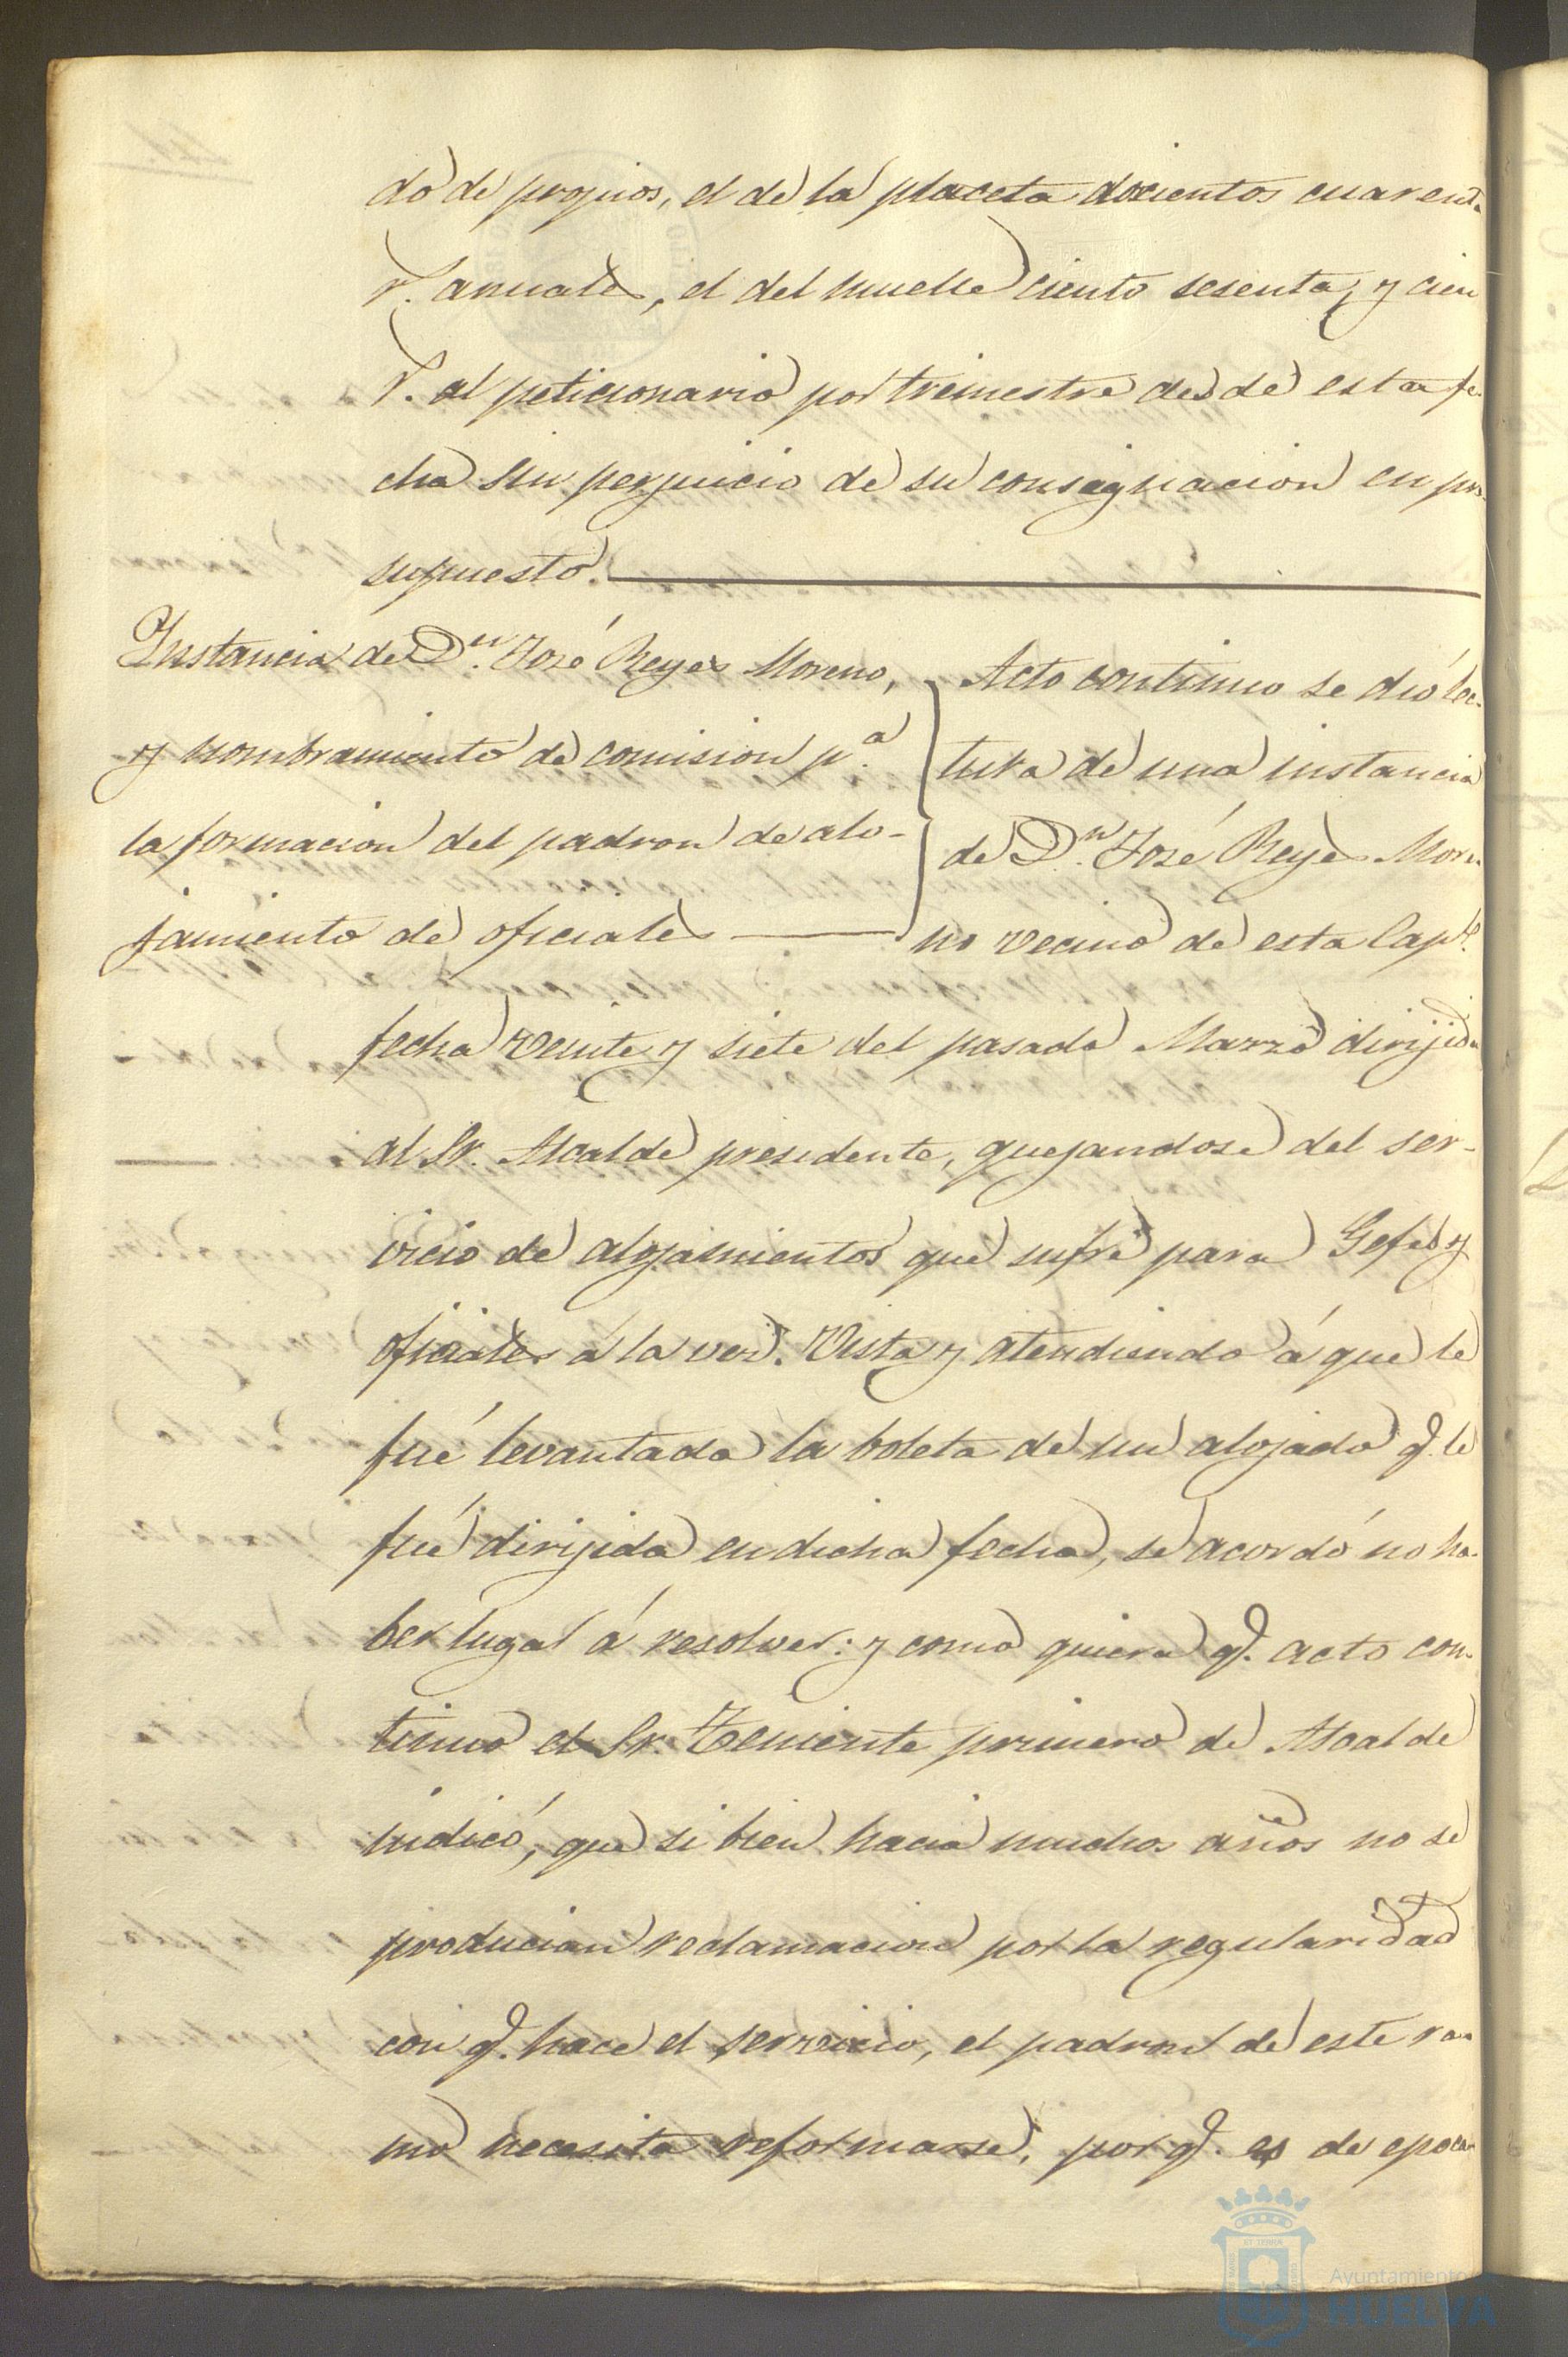 do de propios, el de la placeta docientos cuarenta
r.ˢ anuales, el del muelle ciento sesenta, y cien
r.ˢ al peticionario por trimestre desde esta fe-
cha sin perjuicio de su consignacion en pre-
supuesto.
Instancia de D.ⁿ José Reyes Moreno,
y nombramiento de comision p.ª
la formacion del padron de alo-
jamiento de oficiales
Acto continuo se dió lec-
tura de una instancia
de D.ⁿ José Reyes More-
no vecino de esta Cap.ˡ
fecha veinte y siete del pasado Marzo dirijida
al Sr. Alcalde presidente, quejandose del ser-
vicio de alojamientos que sufre para Gefes y
oficiales á la vez. Vista y atendiendo á que le
fué levantada la boleta de un alojado q.ᵉ le
fué dirijida en dicha fecha, se acordó no ha-
ber lugar á resolver: y como quiera q.ᵉ acto con-
tinuo el Sr. Teniente primero de Alcalde
indicó, que si bien hacia muchos años no se
producian reclamacion por la regularidad
con q.ᵉ hace el servicio, el padron de este ra-
mo necesita reformarse, por q.ᵉ es de epoca
Ayuntamiento
HUELVA